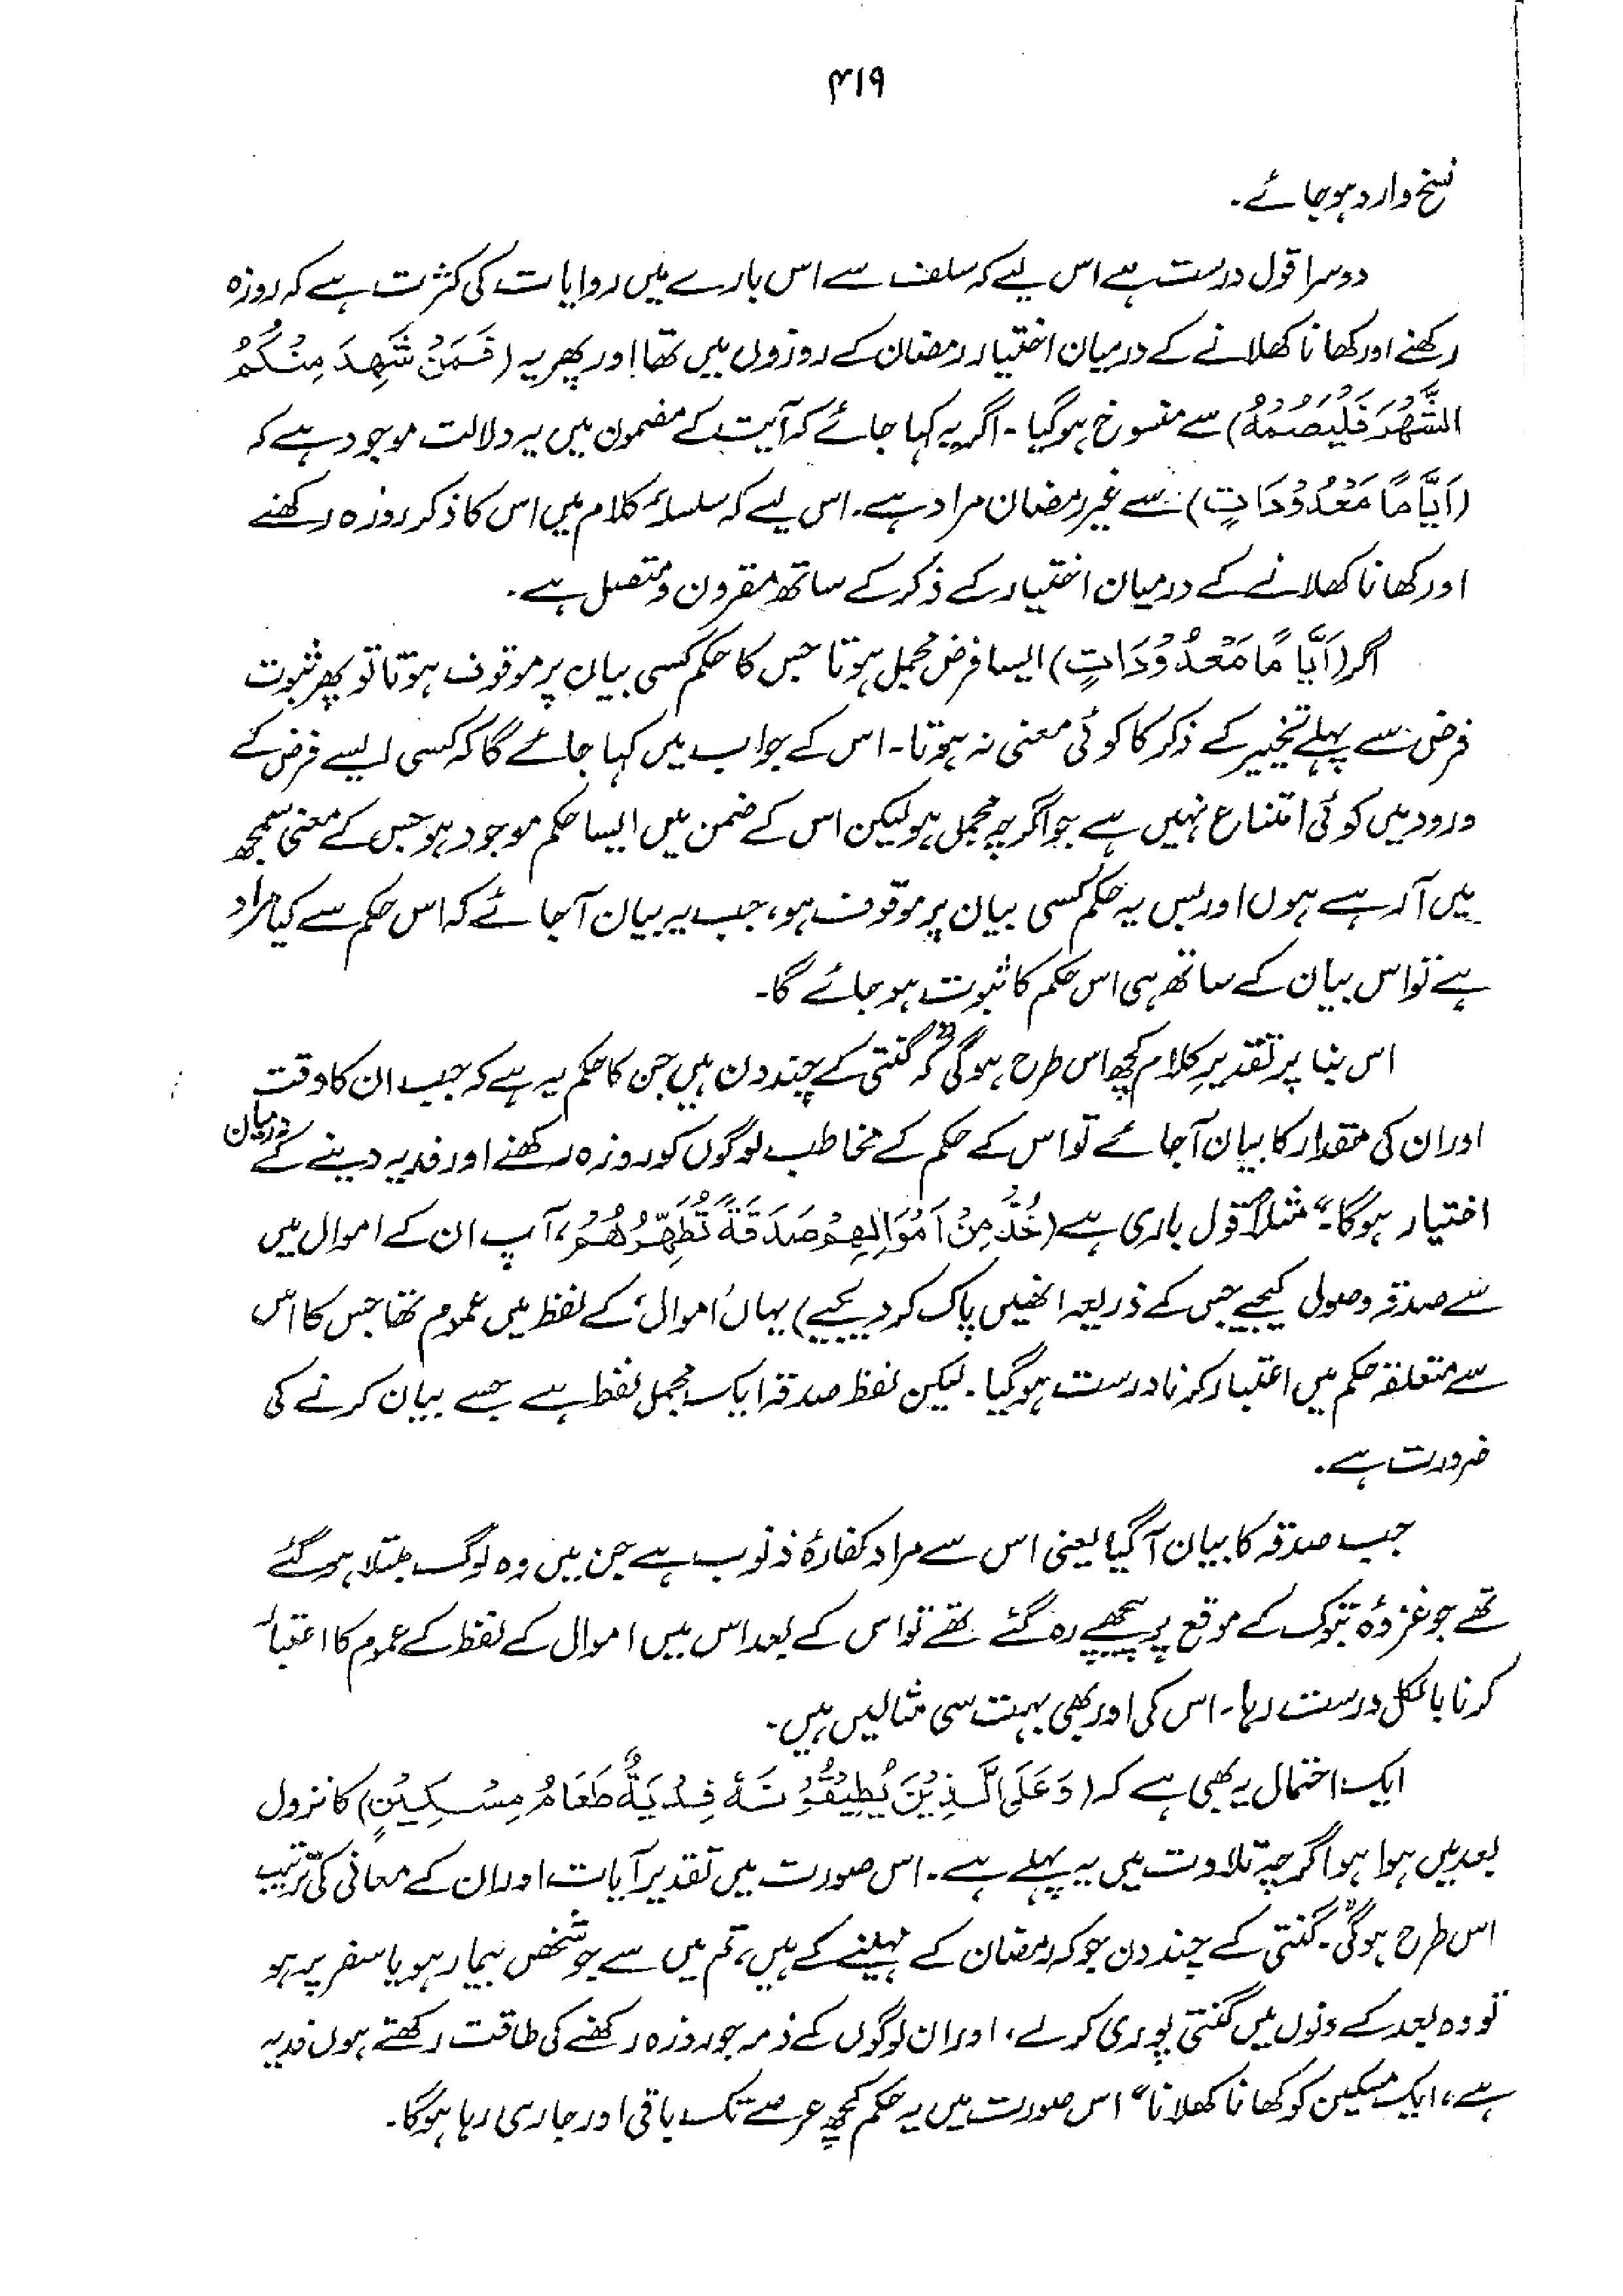 ۴۱۹
نسخ وارد ہو جائے۔
دوسرا قول درست ہے اس لیے کہ سلف سے اس بارے میں روایات کی کثرت ہے کہ روزہ
رکھنے اور کھانا کھلانے کے درمیان اختیار رمضان کے روزوں میں تھا اور پھر یہ (فَمَنْ شَهِدَ مِنْكُمُ
الشَّهْرَ فَلْيَصُمْهُ) سے منسوخ ہو گیا۔ اگر یہ کہا جائے کہ آیت کے مضمون میں یہ دلالت موجود ہے کہ
(اَيَّامًا مَعْدُوْدَاتٍ) سے غیر رمضان مراد ہے۔ اس لیے کہ سلسلۂ کلام میں اس کا ذکر روزہ رکھنے
اور کھانا کھلانے کے درمیان اختیار کے ذکر کے ساتھ مقرون و متصل ہے۔
اگر (اَيَّامًا مَعْدُوْدَاتٍ) ایسا فرض مجمل ہوتا جس کا حکم کسی بیان پر موقوف ہوتا تو پھر ثبوت
فرض سے پہلے تخییر کے ذکر کا کوئی معنی نہ ہوتا۔ اس کے جواب میں کہا جائے گا کہ کسی ایسے فرض کے
ورود میں کوئی امتناع نہیں ہے جو اگرچہ مجمل ہو لیکن اس کے ضمن میں ایسا حکم موجود ہو جس کے معنی سمجھ
میں آ رہے ہوں اور بس یہ حکم کسی بیان پر موقوف ہو، جب یہ بیان آ جائے کہ اس حکم سے کیا مراد
ہے تو اس بیان کے ساتھ ہی اس حکم کا ثبوت ہو جائے گا۔
اس بنا پر تقدیرِ کلام کچھ اس طرح ہو گی "کہ گنتی کے چند دن ہیں جن کا حکم یہ ہے کہ جب ان کا وقت
اور ان کی مقدار کا بیان آ جائے تو اس کے حکم کے مخاطب لوگوں کو روزہ رکھنے اور فدیہ دینے کے درمیان
اختیار ہوگا۔" مثلاً قول باری ہے (خُذْ مِنْ اَمْوَالِهِمْ صَدَقَةً تُطَهِّرُهُمْ، آپ ان کے اموال میں
سے صدقہ وصول کیجیے جس کے ذریعہ انھیں پاک کر دیجیے) یہاں 'اموال' کے لفظ میں عموم تھا جس کا اس
سے متعلقہ حکم میں اعتبار کرنا درست ہو گیا۔ لیکن لفظ صدقہ ایک مجمل لفظ ہے جسے بیان کرنے کی
ضرورت ہے۔
جب صدقہ کا بیان آ گیا یعنی اس سے مراد کفارۂ ذنوب ہے جن میں وہ لوگ مبتلا ہو گئے
تھے جو غزوۂ تبوک کے موقع پر پیچھے رہ گئے تھے تو اس کے بعد اس میں اموال کے لفظ کے عموم کا اعتبار
کرنا بالکل درست رہا۔ اس کی اور بھی بہت سی مثالیں ہیں۔
ایک احتمال یہ بھی ہے کہ (وَعَلَى الَّذِيْنَ يُطِيْقُوْنَهٗ فِدْيَةٌ طَعَامُ مِسْكِيْنٍ) کا نزول
بعد میں ہوا ہو اگرچہ تلاوت میں یہ پہلے ہے۔ اس صورت میں تقدیر آیات اور ان کے معانی کی ترتیب
اس طرح ہو گی "۔ گنتی کے چند دن جو کہ رمضان کے مہینے کے ہیں، تم میں سے جو شخص بیمار ہو یا سفر پر ہو
تو وہ بعد کے دنوں میں گنتی پوری کر لے، اور ان لوگوں کے ذمہ جو روزہ رکھنے کی طاقت رکھتے ہوں فدیہ
ہے، ایک مسکین کو کھانا کھلانا" اس صورت میں یہ حکم کچھ عرصے تک باقی اور جاری رہا ہوگا۔